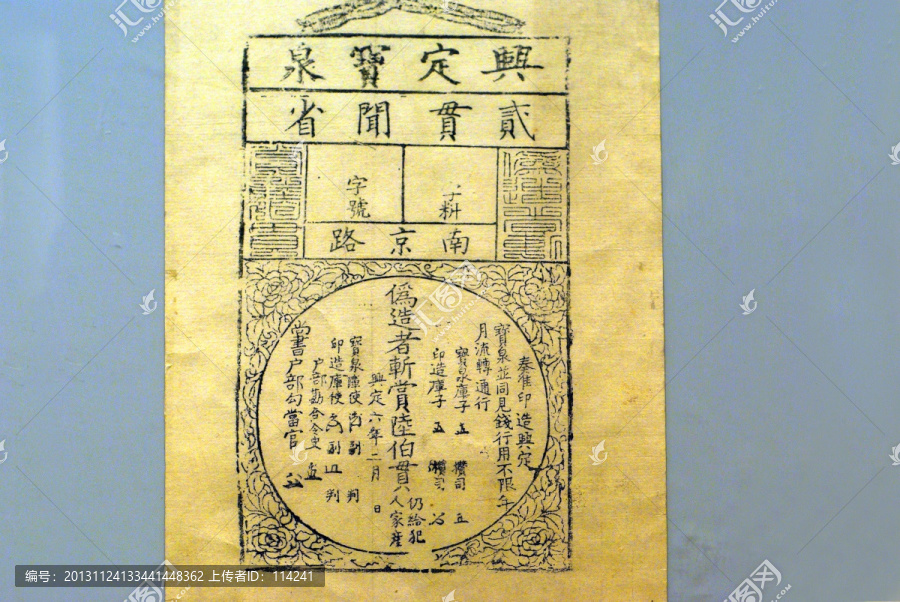 興定寶泉
貳貫聞省
字料
字號
南京路
奏准印造興定
寶泉並同見錢行用不限年
月流轉通行
寶泉庫子 攢司
印造庫子 攢司
偽造者斬賞陸伯貫仍給犯人家産
興定六年二月 日
寶泉庫使 副 判
印造庫使 副 判
户部勘合令史
尚書户部勾當官
编号：20131124133441448362 上传者ID：114241
汇图网
www.huitu.com